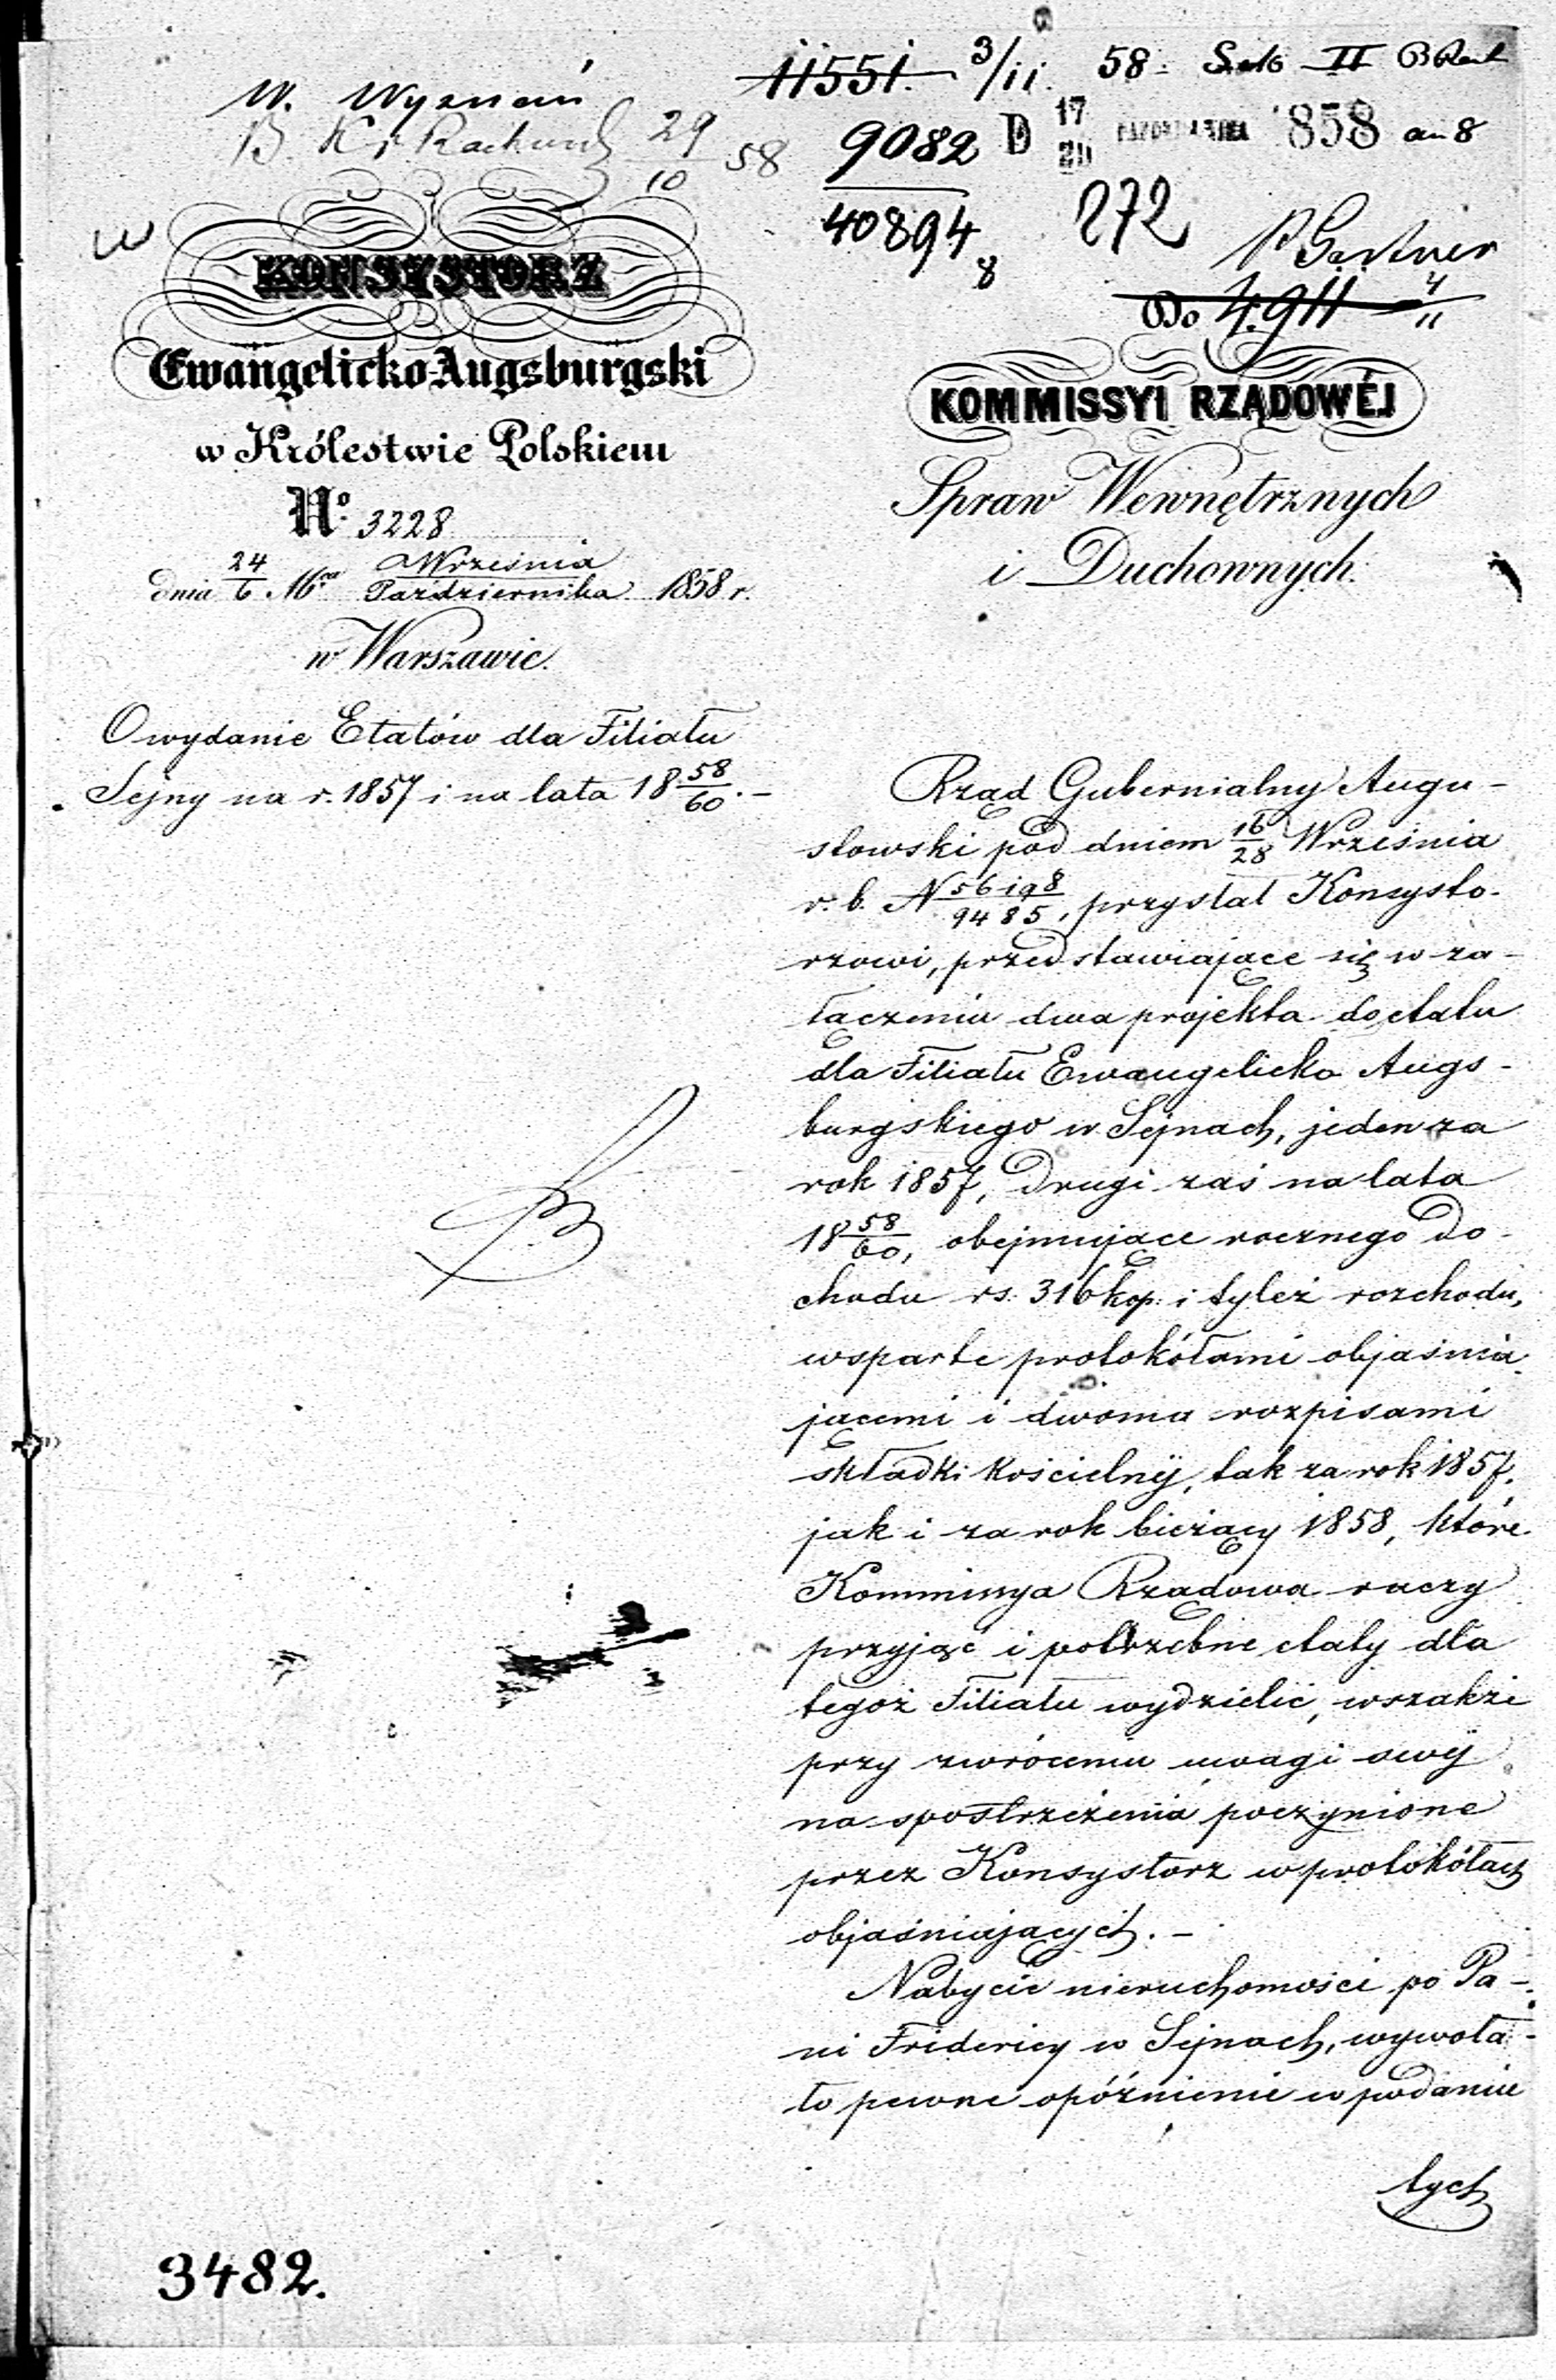 11551. 3/11. 58. II
W. Wyznań
29/10 58
9082 D 17/29 PAZDZIERNIKA 1858
40894
8
272
Gertner
4911 4/11
KONSYSTORZ
Ewangelicko-Augsburgski
w Królestwie Polskiem
No. 3228
dnia 24/6 Mca Września/Października 1858 r.
w Warszawie.
O wydanie Etatów dla Filiału
Sejny na r. 1857 i na lata 18 58/60. –
Do
KOMMISSYI RZĄDOWÉJ
Spraw Wewnętrznych
i Duchownych.
Rząd Gubernialny Augu-
stowski pod dniem 16/28 Września
r. b. N 56198/9485, przysłał Konsysto-
rzowi, przedstawiające się w za-
łączeniu dwa projekta do etatu
dla Filiału Ewangelicko Augs-
burgskiego w Sejnach, jeden za
rok 1857, drugi zaś na lata
18 58/60, obejmujące rocznego do-
chodu rs. 316 kop. i tyleż rozchodu,
wsparte protokółami objaśnia-
jącemi i dwoma rozpisami
składki kościelnéj, tak za rok 1857,
jak i za rok bieżący 1858, które
Kommissya Rządowa raczy
przyjąć i potrzebne etaty dla
tegoż Filiału wydzielić, wszakże
przy zwróceniu uwagi swéj
na spostrzeżenia poczynione
przez Konsystorz w protokółach
objaśniających. –
Nabycie nieruchomości po Pa-
ni Fridericy w Sejnach, wywoła-
ło pewne opóźnienie w podaniu
tych
3482.